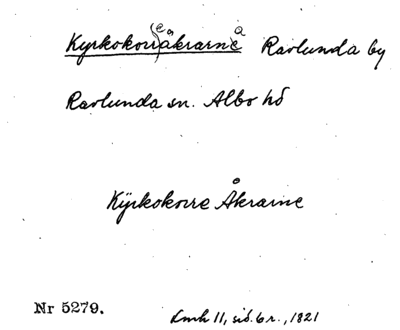 Kyrkokorr(e)åkrarna Ravlunda by
Ravlunda sn. Albo hd
Kÿrkokorre Åkrarne
Nr 5279.
Lmh 11, sid. 6 r., 1821